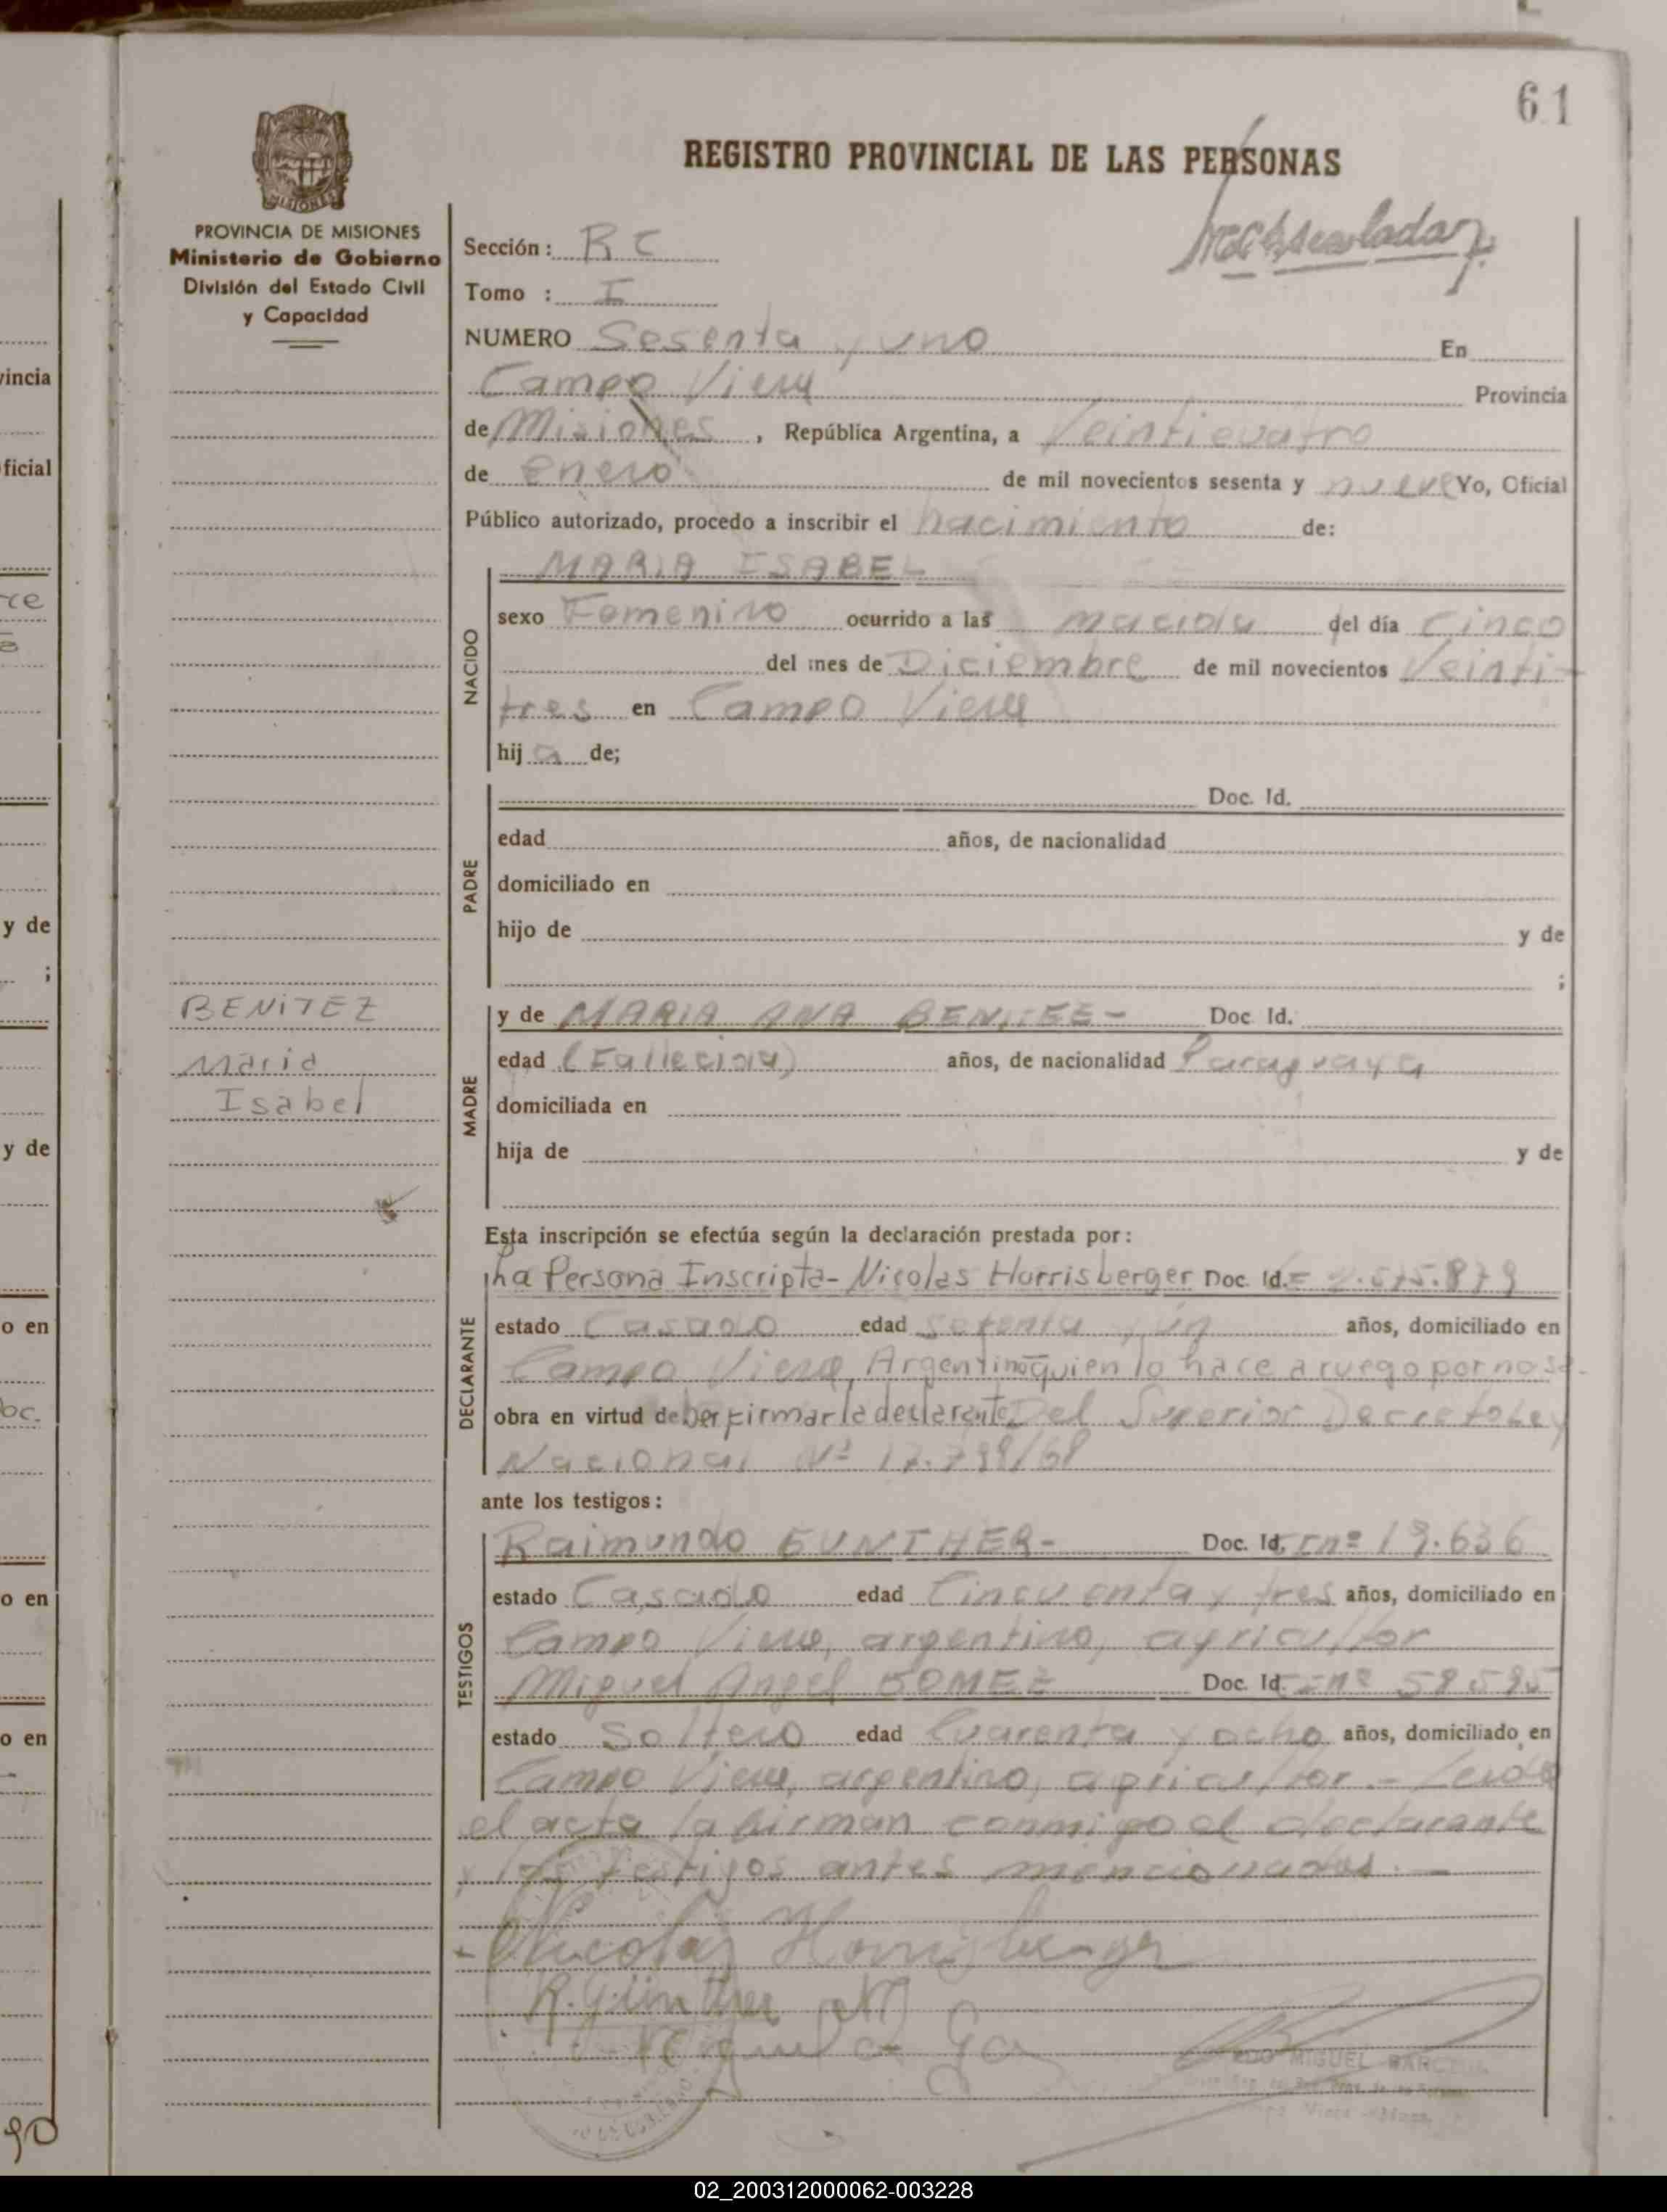 61
REGISTRO PROVINCIAL DE LAS PERSONAS
PROVINCIA DE MISIONES
Ministerio de Gobierno
División del Estado Civil
y Capacidad
Sección: R C
Tomo : I
NUMERO Sesenta y uno En
Campo Viera Provincia
de Misiones, República Argentina, a Veinticuatro
de enero de mil novecientos sesenta y nueve Yo, Oficial
Público autorizado, procedo a inscribir el nacimiento de:
NACIDO
MARIA ISABEL
sexo Femenino ocurrido a las del día cinco
del mes de Diciembre de mil novecientos Veinti-
tres en Campo Viera
hij a de;
PADRE
Doc. Id.
edad años, de nacionalidad
domiciliado en
hijo de y de
;
BENITEZ
Maria
Isabel
MADRE
y de MARIA ANA BENITEZ- Doc Id.
edad (Fallecida) años, de nacionalidad Paraguaya
domiciliada en
hija de y de
Esta inscripción se efectúa según la declaración prestada por:
DECLARANTE
La Persona Inscripta- Nicolas Horrisberger Doc. Id.
estado Casado edad setenta y un años, domiciliado en
Campo Viera, Argentino quien lo hace a ruego por no sa-
obra en virtud de ber firmar la declarante Del Superior Decreto Ley
Nacional Nº
ante los testigos:
TESTIGOS
Raimundo GUNTHER- Doc. Id. nº 19.636
estado Casado edad Cincuenta y tres años, domiciliado en
Campo Viera, argentino, agricultor
Miguel Angel GOMEZ Doc. Id. nº 58.595
estado Soltero edad Cuarenta y ocho años, domiciliado en
Campo Viera, argentino, agricultor.- Leida
el acta la firman conmigo el declarante
y los testigos antes mencionados.-
Nicolas Horrisberger
R. Günther
MIGUEL
vincia
ficial
y de
;
y de
o en
o en
o en
90
02_200312000062-003228